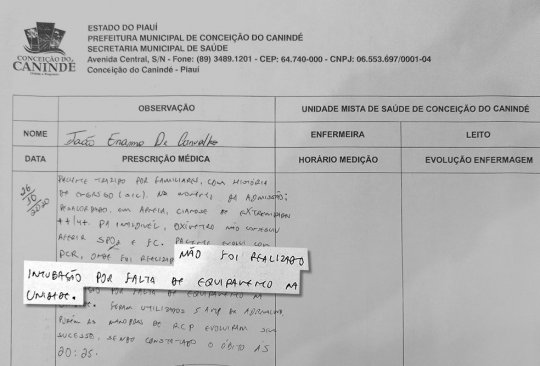 ESTADO DO PIAUÍ
PREFEITURA MUNICIPAL DE CONCEIÇÃO DO CANINDÉ
SECRETARIA MUNICIPAL DE SAÚDE
Avenida Central, S/N - Fone: (89) 3489.1201 - CEP: 64.740-000 - CNPJ: 06.553.697/0001-04
Conceição do Canindé - Piauí
CONCEIÇÃO DO
CANINDÉ
OBSERVAÇÃO
UNIDADE MISTA DE SAÚDE DE CONCEIÇÃO DO CANINDÉ
NOME
João De Carvalho
ENFERMEIRA
LEITO
DATA
PRESCRIÇÃO MÉDICA
HORÁRIO MEDIÇÃO
EVOLUÇÃO ENFERMAGEM
26/10/2020
PACIENTE TRAZIDO POR FAMILIARES, COM HISTÓRIA
DE ENGASGO (SIC). NO MOMENTO DA ADMISSÃO:
DESACORDADO, EM APNEIA, CIANOSE DE EXTREMIDADES
++/4+. PA INAUDÍVEL, OXÍMETRO NÃO CONSEGUIU
AFERIR SPO2 E FC. PACIENTE EVOLUI COM
PCR, ONDE FOI REALIZADO
NÃO FOI REALIZADO
INTUBAÇÃO POR FALTA DE EQUIPAMENTO NA
UNIDADE.
POR FALTA DE EQUIPAMENTO NA
FORAM UTILIZADOS 5 AMP DE ADRENALINA,
PORÉM AS MANOBRAS DE RCP EVOLUÍRAM SEM
SUCESSO, SENDO CONSTATADO O ÓBITO ÀS
20:25.